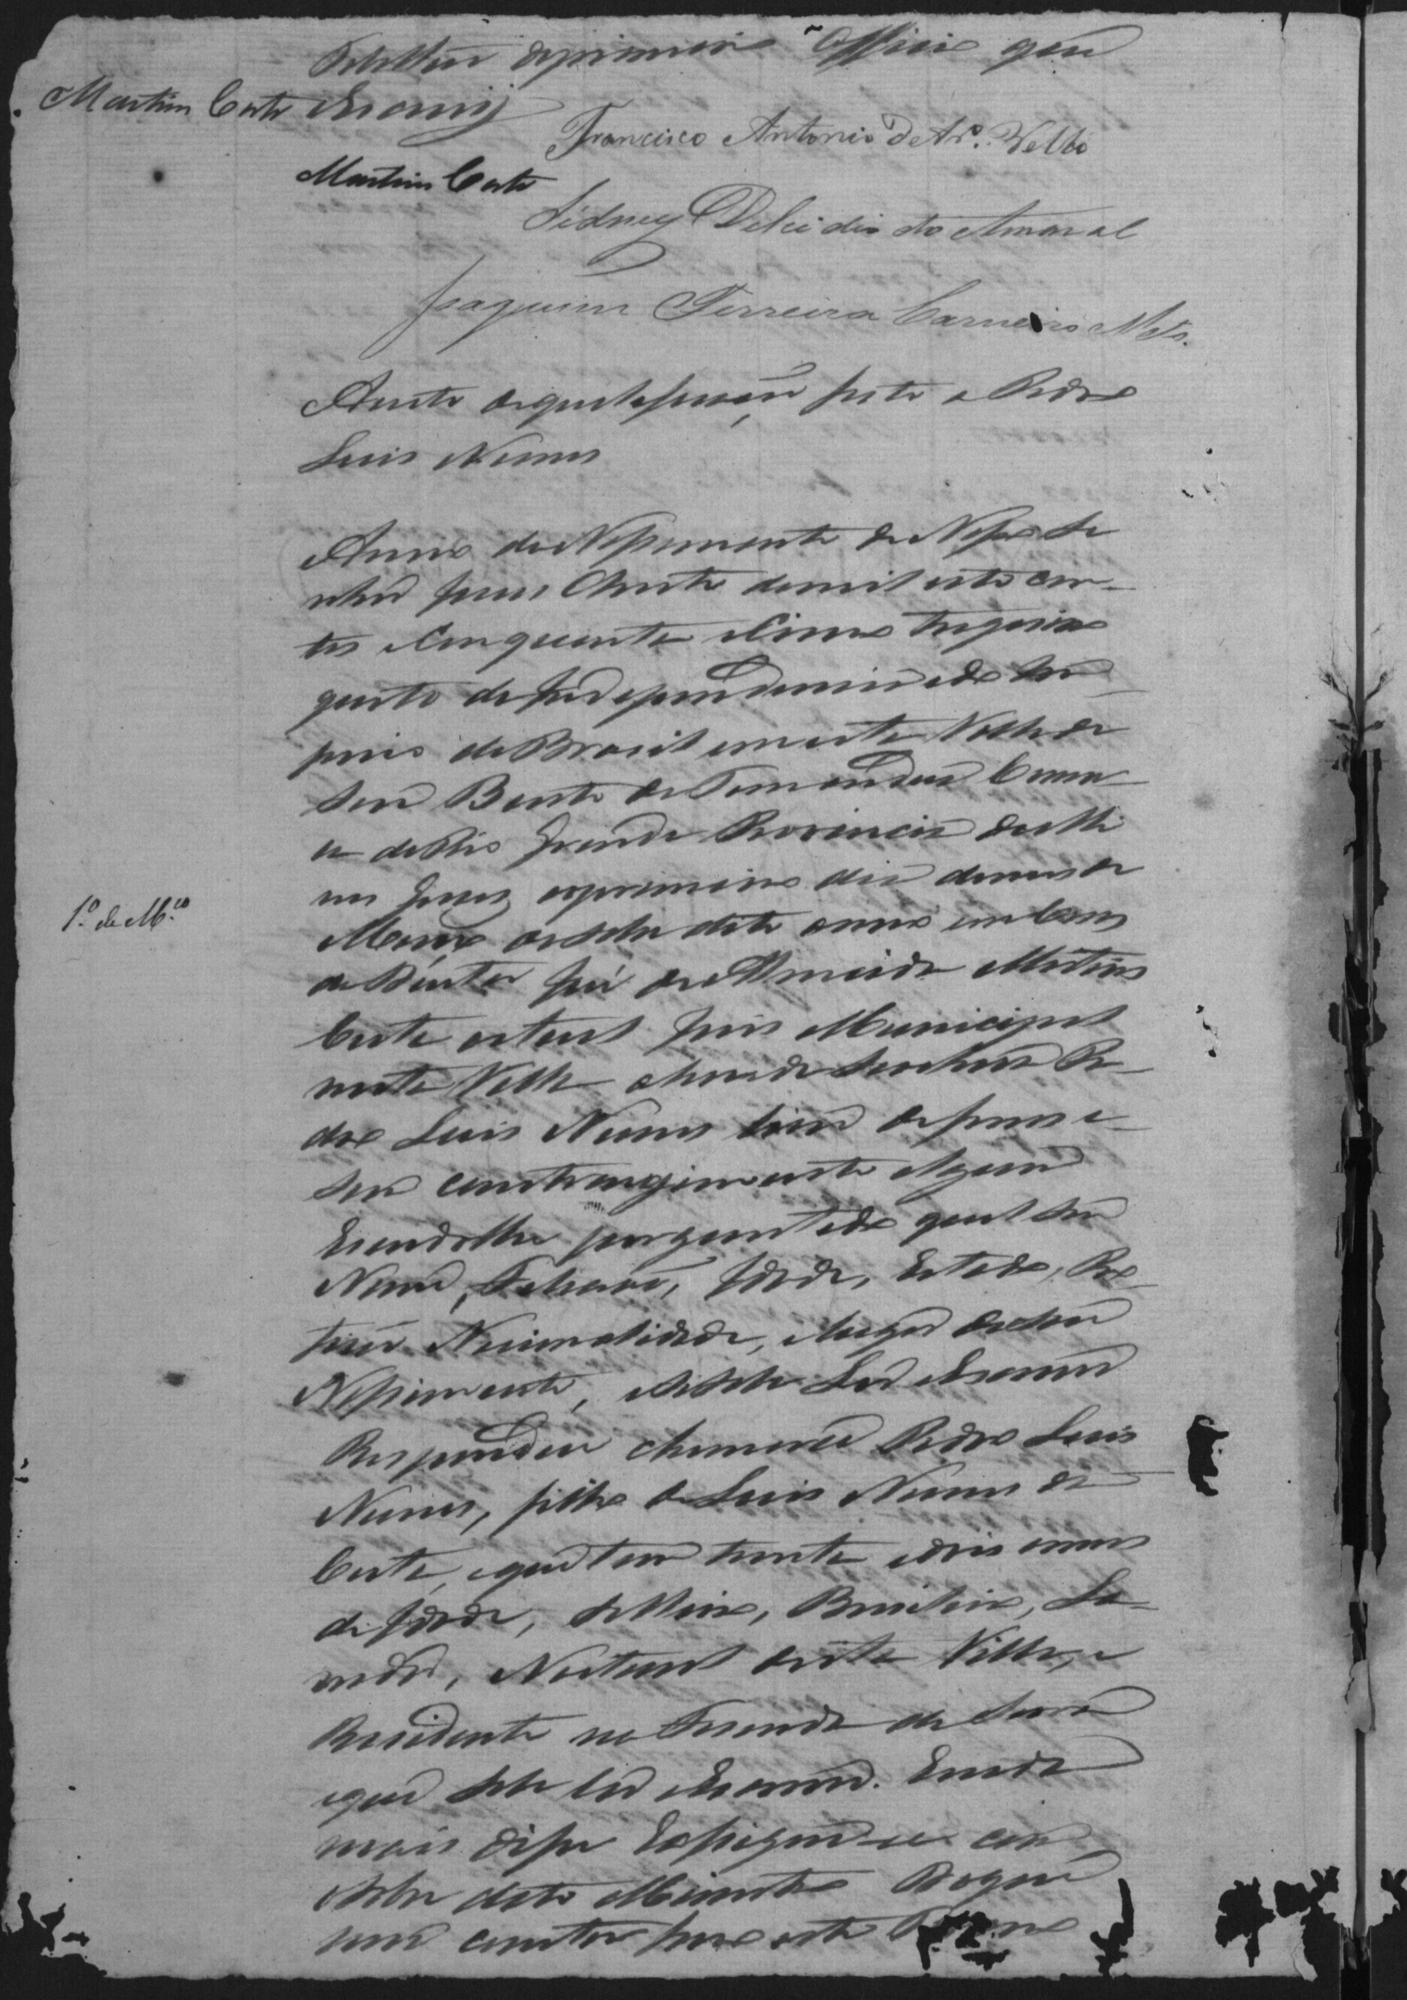 Tabelliaõ do primeiro Officio que
Martins Costa escrevy
Francisco Antonio de Ar.º Vellº
Martins Costa
Sidney Delcidio do Amaral
Joaquim Ferreira Carneiro
Auto de qualificaçaõ feito a Pedro
Luis Nunes
Anno do Nascimento de Nosso Se
nhor Jesus Christo de mil oito cen-
tos e cincoenta e cinco trigesimo
quarto da Independencia e do Im-
perio do Brasil em esta Villa de
Saõ Bento de Tamanduá Comar-
ca do Rio Grande Provincia de Mi
nas Geraes, ao primeiro dia do mes de
Março do dito anno em Casas
do Doutor José de Almeida Martins
Costa actual Juis Municipal
nesta Villa ahi
Pe-
dro Luis Nunes livre de ferros e
sem constrangimento algum
E sendo lhe perguntado qual seu
Nome, Filiaçaõ, Idade, Estado, Pro-
fissaõ Nacionalidade, e lugar de seu
Nascimento, e se sabe Ler e Escrever
Respondeu chamar se Pedro Luis
Nunes, filho de Luis Nunes da
Costa, e que tem trinta e dois annos
de Idade, Solteiro, Brasileiro, La-
vrador, Natural desta Villa, e
Residente na Fazenda da Serra
e que sabe ler e Escrever. E nada
mais disse
do dito
para constar faço este Termo
1.º de M.ço